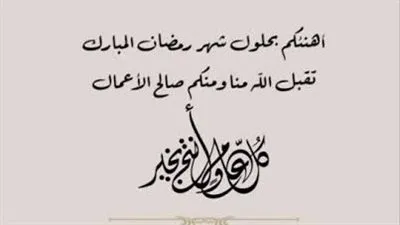 أهنئكم بحلول شهر رمضان المبارك
تقبل الله منا ومنكم صالح الأعمال
كل عام وأنتم بخير